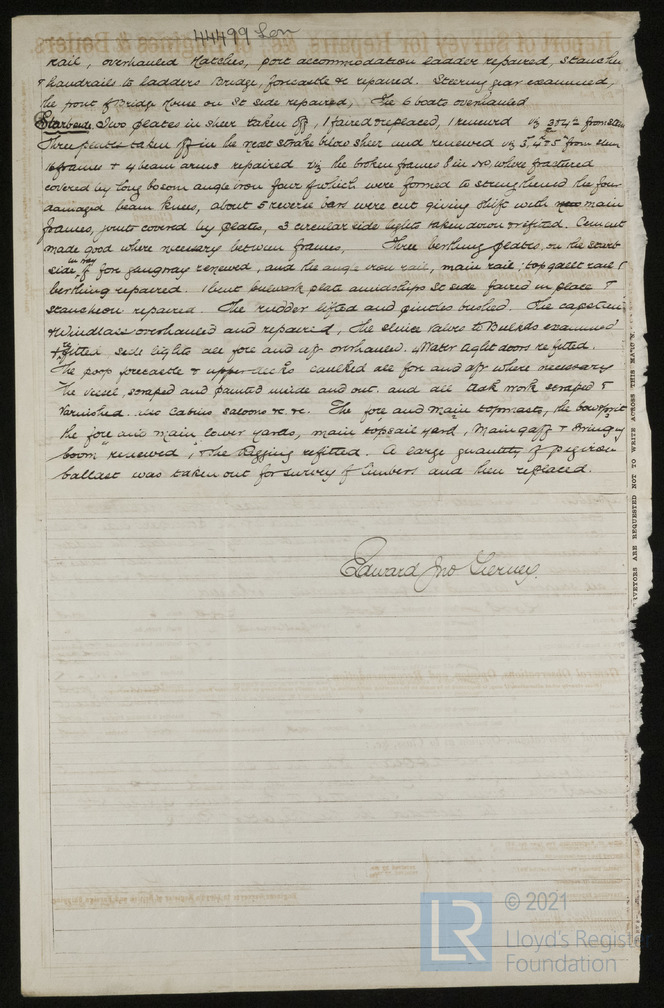 44499 Lon
rail, overhauled Hatches, port accommodation ladder repaired, Stanchns
& handrails to ladders Bridge, forecastle & repaired. Steering gear examined,
the front of Bridge House on St side repaired, The 6 boats overhauled
Starboard Two plates in sheer taken off, 1 faired & replaced, 1 renewed viz 3rd & 4th from stem
Three plates taken off in the next strake below sheer and renewed viz 3, 4 & 5th from stem
16 frames & 4 beam arms repaired viz the broken frames 8 in No. where fractured
covered by long bosom angle iron four of which were formed to strengthened the four
damaged beam knees, about 5 reverse bars were cut giving shift with main
frames, joints covered by plates, 3 circular side lights taken down & refitted. Cement
made good where necessary between frames, Three berthing plates on the starb
side in way of for gangway renewed, and the angle iron rail, main rail, topgallt rail &
berthing repaired. 1 bent bulwark plate amidships St side faired in place &
stancheon repaired. The rudder lifted and pintles bushed. The capstan
& Windlass overhauled and repaired, the sluice valves to Bulkhds examined
& refitted. Side lights all fore and aft overhauled. 4 Water tight doors refitted.
The poop forecastle & upper decks caulked all for and aft where necessary
The vessel scraped and painted inside and out. and all teak work scraped &
varnished. also Cabins saloons &c. &c. The fore and main topmasts, the bowsprit
the fore and main lower yards, main topsail yard, Main gaff & Bringing
boom renewed, & the Rigging refitted. A large quantity of pig iron
ballast was taken out for survey of limbers and then replaced.
Edward Jno Tierney.
VEYORS ARE REQUESTED NOT TO WRITE ACROSS THIS MARGIN.
© 2021
LR
Lloyd's Register
Foundation